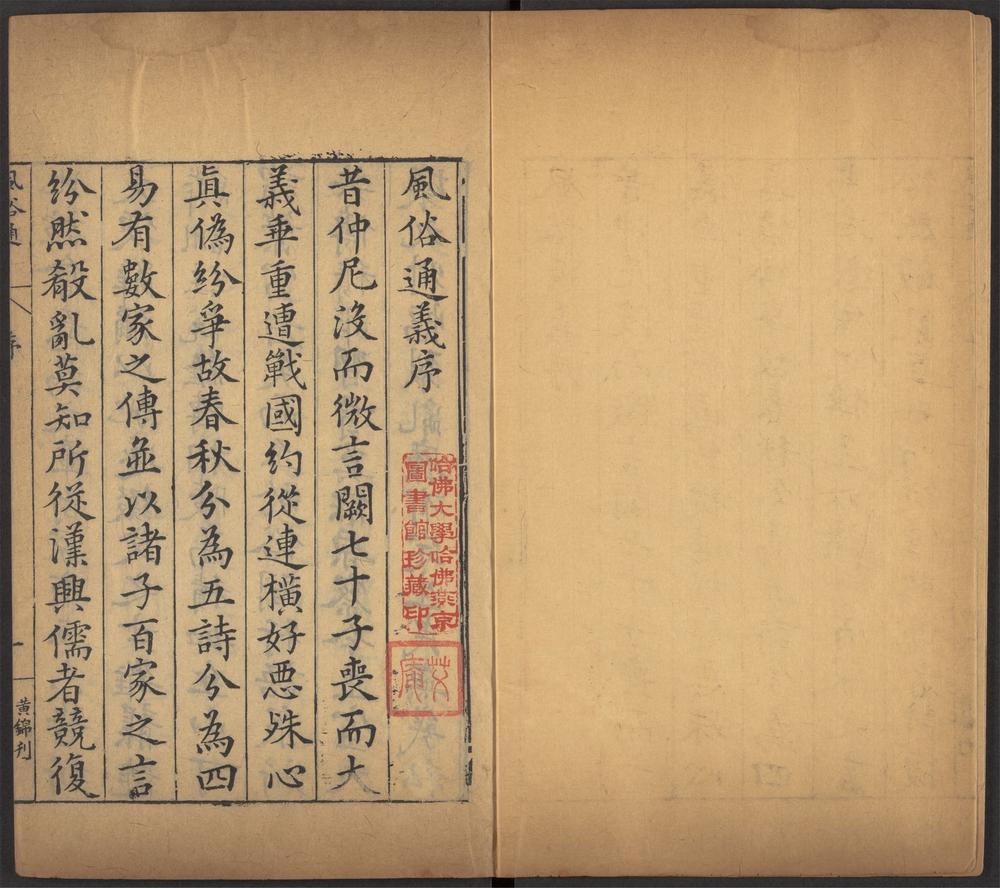 風俗通義序
昔仲尼没而微言闕七十子喪而大
義乖重遭戰國約從連橫好惡殊心
眞僞紛爭故春秋分為五詩分為四
易有數家之傳並以諸子百家之言
紛然殽亂莫知所從漢興儒者競復
風俗通
序
一
黃錦刊
哈佛大學哈佛燕京
圖書館珍藏印